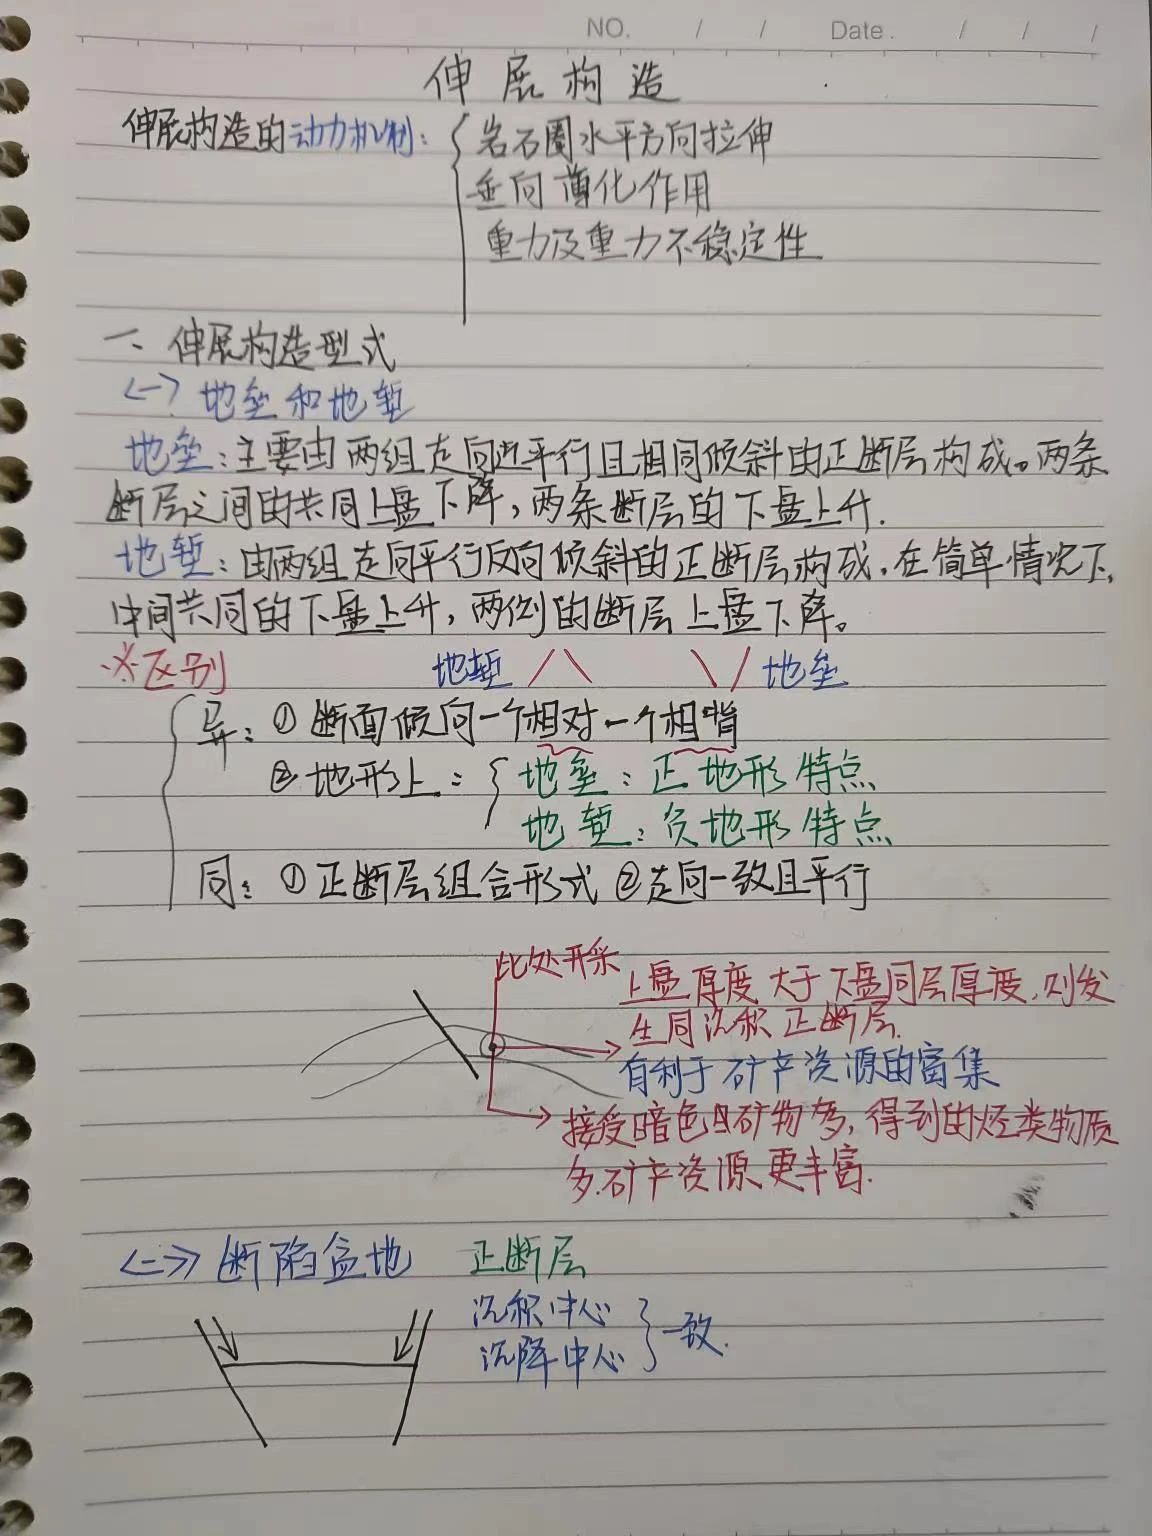 NO. / / Date. / / /
伸展构造
伸展构造的动力机制:
岩石圈水平方向拉伸
垂向薄化作用
重力及重力不稳定性
一、伸展构造型式
<一> 地垒和地堑
地垒:主要由两组走向近平行且相同倾斜的正断层构成。两条
断层之间的共同上盘下降,两条断层的下盘上升.
地堑:由两组走向平行反向倾斜的正断层构成,在简单情况下,
中间共同的下盘上升,两侧的断层上盘下降。
※区别 地堑 / \ \ / 地垒
异:①断面倾向一个相对一个相背
②地形上:
地垒:正地形特点
地堑:负地形特点
同:①正断层组合形式 ②走向一致且平行
此处开采
上盘厚度大于下盘同层厚度,则发
生同沉积正断层.
有利于矿产资源的富集
接受暗色矿物多,得到的烃类物质
多.矿产资源更丰富.
<二> 断陷盆地 正断层
沉积中心
沉降中心
一致.